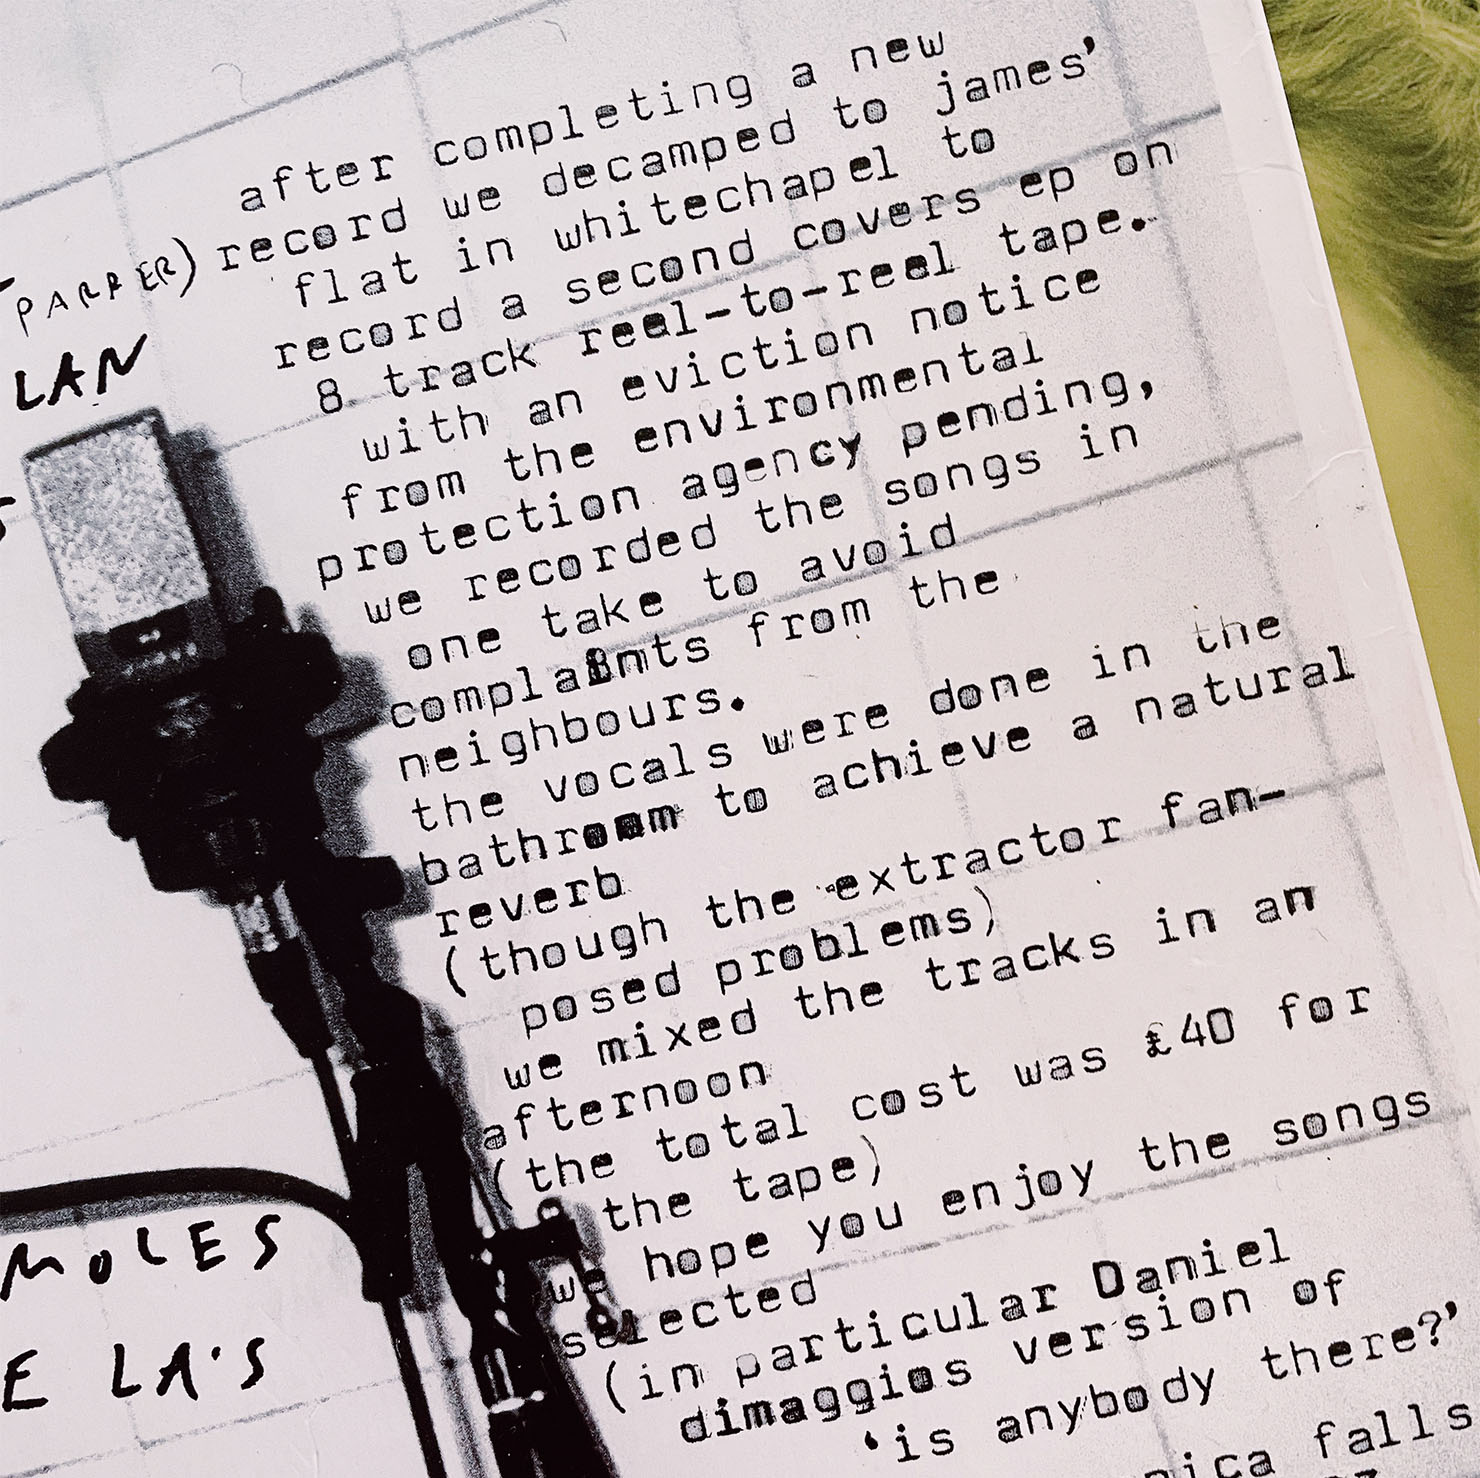 after completing a new
record we decamped to james'
flat in whitechapel to
record a second covers ep on
8 track reel-to-reel tape.
with an eviction notice
from the environmental
protection agency pending,
we recorded the songs in
one take to avoid
complaints from the
neighbours.
the vocals were done in the
bathroom to achieve a natural
reverb
(though the extractor fan-
posed problems)
we mixed the tracks in an
afternoon
(the total cost was £40 for
the tape)
we hope you enjoy the songs
selected
(in particular Daniel
dimaggios version of
'is anybody there?'
falls
PARKER)
LAN
MOLES
E LA'S